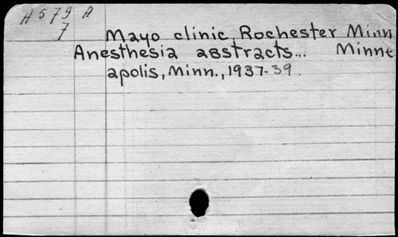 A579 A
7
Mayo clinic, Rochester Minn
Anesthesia abstracts... Minne
apolis, Minn., 1937-39.